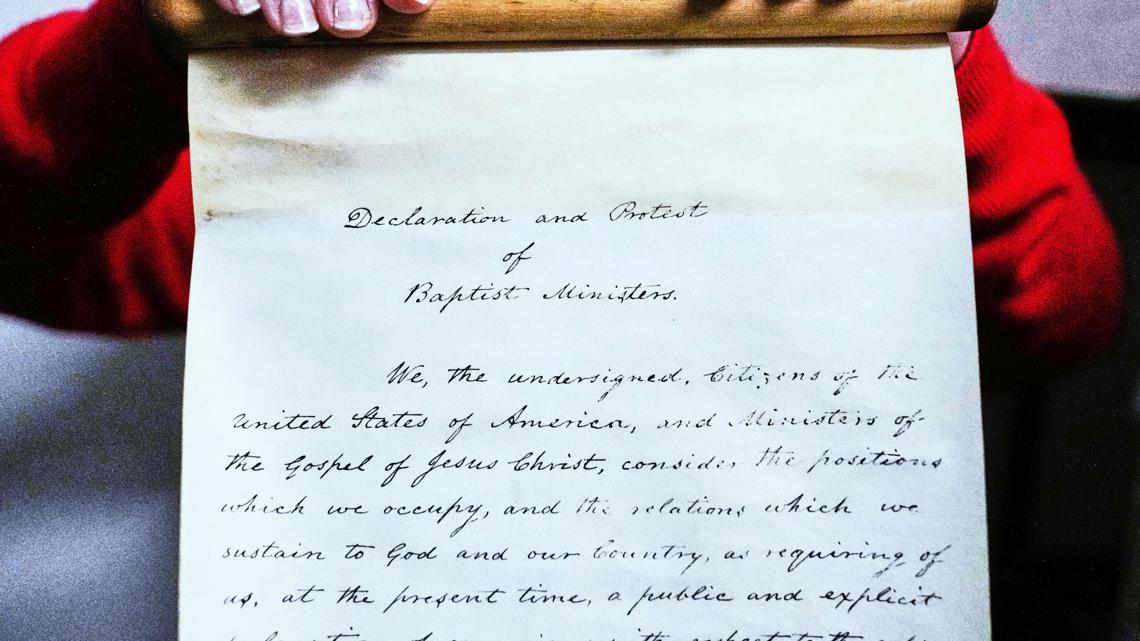 Declaration and Protest
of
Baptist Ministers.
We, the undersigned, Citizens of the
United States of America, and Ministers of
the Gospel of Jesus Christ, consider the positions
which we occupy, and the relations which we
sustain to God and our Country, as requiring of
us, at the present time, a public and explicit